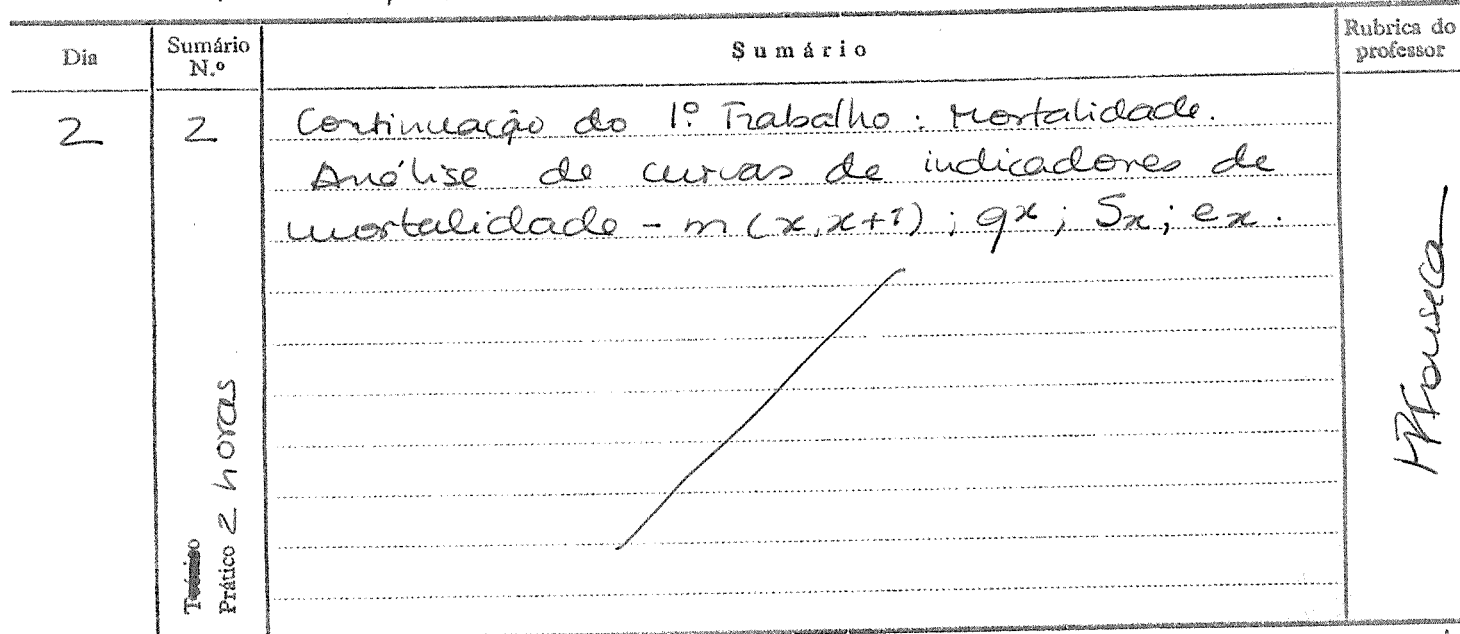 Dia
Sumário N.º
Sumário
Rubrica do professor
2
2
Continuação do 1.º Trabalho: Mortalidade.
Análise de curvas de indicadores de
mortalidade - m(x,x+1); qx; Sx; ex.
Teórico
Prático 2 horas